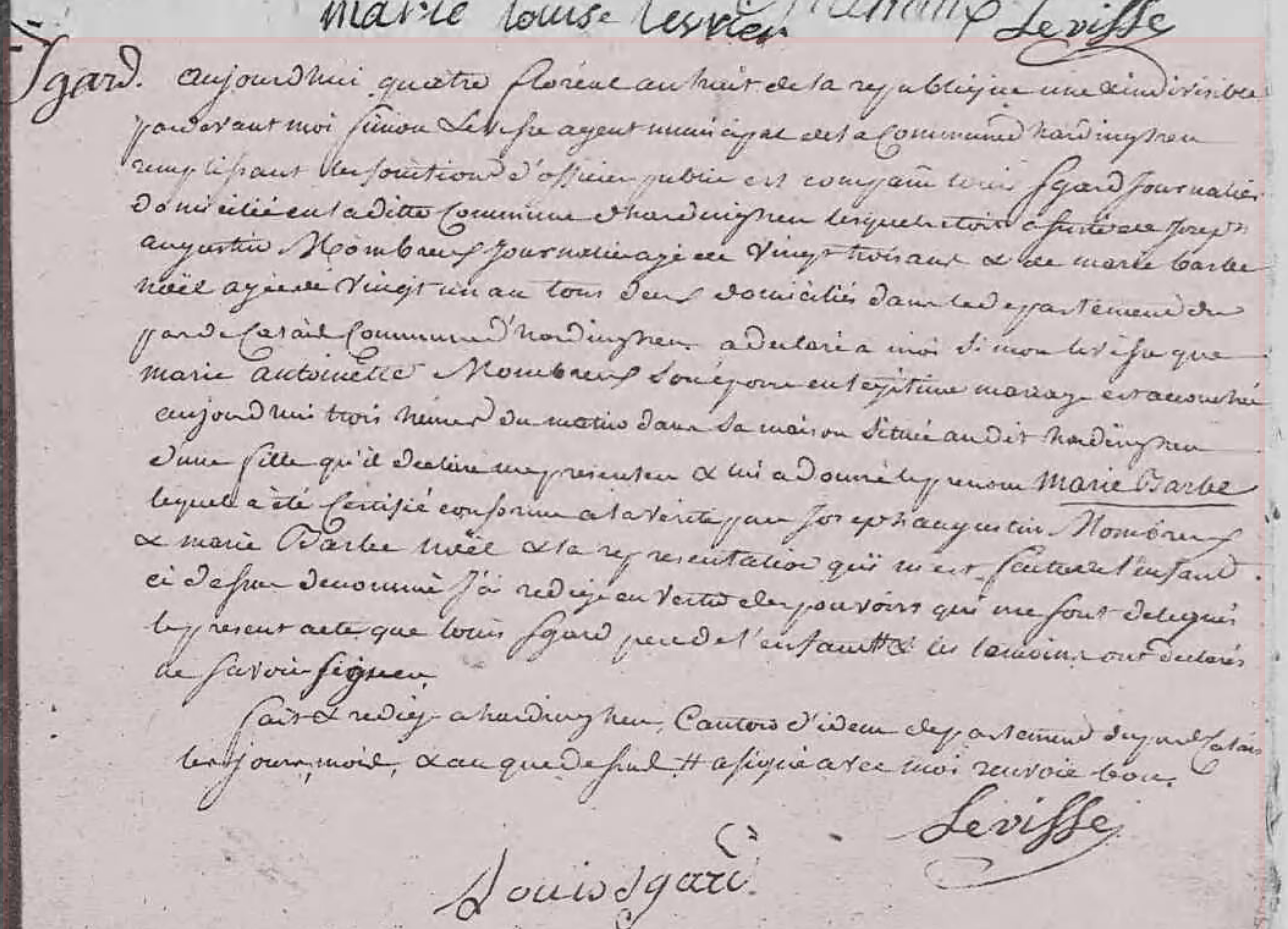 marie louise lesvier Levisse
Sgard. aujourd'hui quatre floréal an huit de la republique une & indivisible
pardevant moi Simon Levisse agent municipal de la Commune d'hardinghen
remplissant les fonctions d'officier public est comparu louis Sgard Journalier
Domicilié en la ditte Commune d'hardinghen lesquel etoit assisté de Joseph
augustin Mombreux Journalier agé de vingt trois ans & de marie barbe
noël agée de vingt un an tous deux domiciliés dans le departement du
pas de Calais Commune d'hardinghen a declaré a moi Simon levisse que
marie antoinette Mombreux son épouse en legitime mariage est accouchée
aujourd'hui trois heures du matin dans sa maison située audit hardinghen
d'une fille qu'il declare me presenter & lui a donné le prenom Marie Barbe
lequel a été Certifié conforme a la verité par Joseph augustin Mombreux
& marie Barbe noël & la representation qui m'est faite de l'enfant
ci dessus denommé J'ai redigé en vertu des pouvoirs qui me sont delegués
le present acte que louis Sgard pere de l'enfant # & les temoins ont declarés
ne savoir signer
fait & redigé a hardinghen Canton d'idem departement du pas de Calais
les jours, mois, & an que dessus # a signé avec moi renvoie bon.
Levisse
Louis Sgard